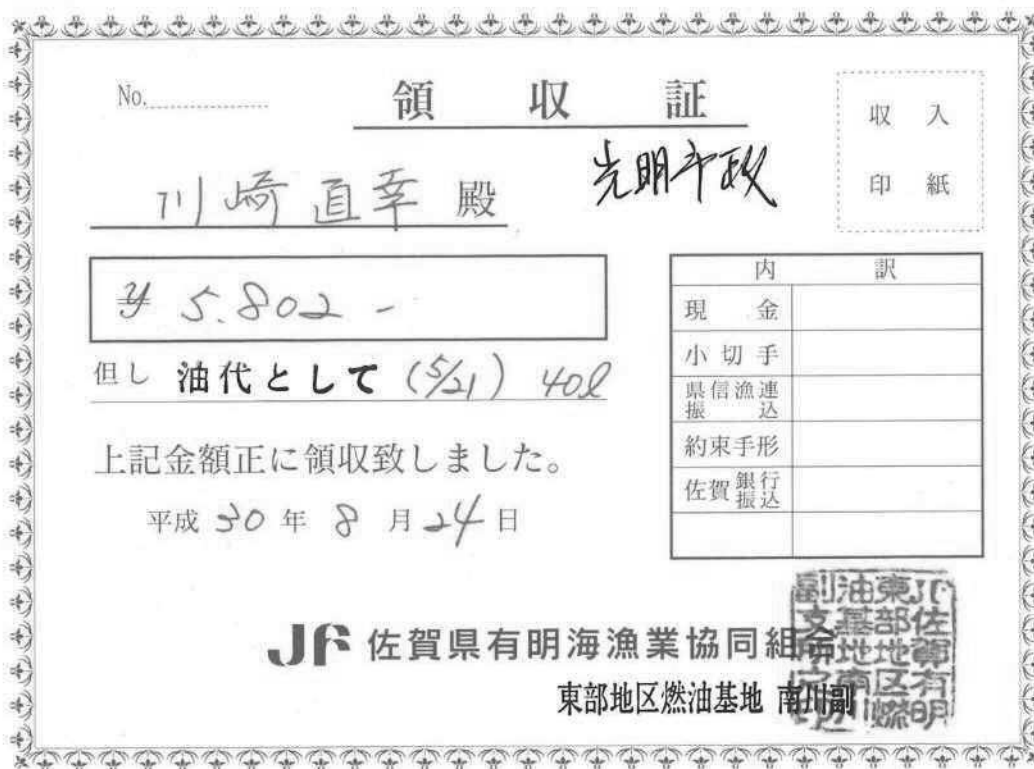 No.
領収証
収入
印紙
川崎直幸 殿
光明市政
¥ 5.802 -
但し 油代として (5/21) 40ℓ
上記金額正に領収致しました。
平成 30 年 8 月 24 日
内訳
現金
小切手
県信漁連
振込
約束手形
佐賀銀行振込
JF 佐賀県有明海漁業協同組合
東部地区燃油基地 南川副